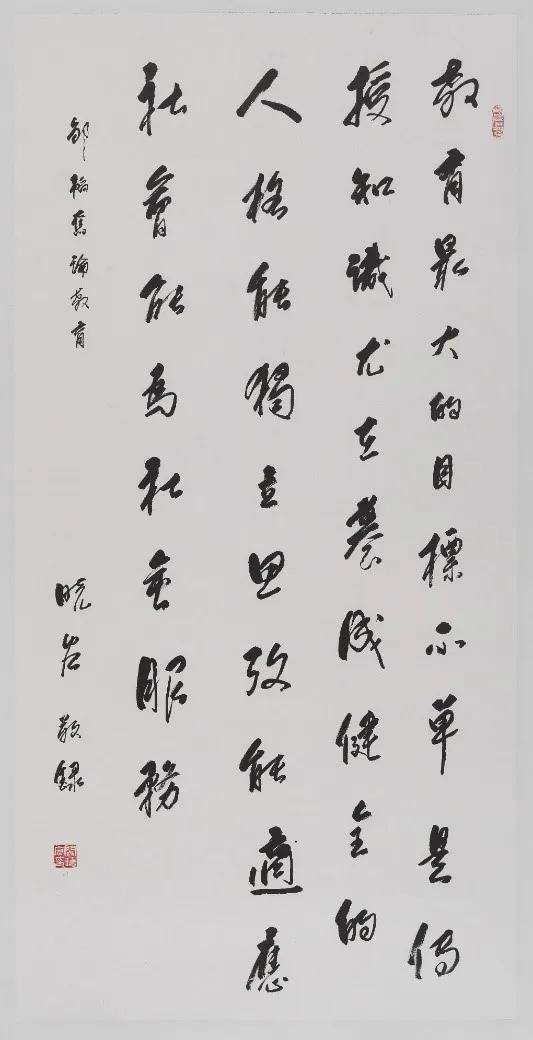 教育最大的目標不單是傳
授知識尤在養成健全的
人格能獨立思攷能適應
社會能為社會服務
鄒韜奮論教育
晓岩敬録